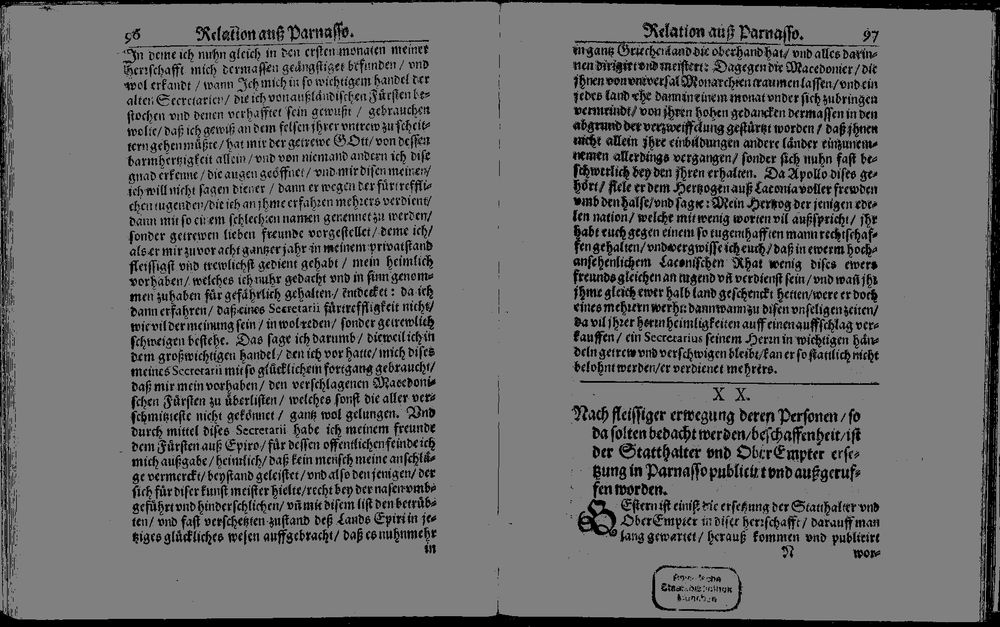 96 Relation auß Parnasso.
In deme ich nuhn gleich in den ersten monaten meiner
herrschafft mich dermassen geängstiget befunden / und
wol erkandt / wann Ich mich in so wichtigem handel der
alten Secretarien / die ich von außländischen Fürsten be-
stochen und denen verhafftet sein gewußt / gebrauchen
wolte / daß ich gewiß an dem felsen jhrer untrew zu scheit-
tern gehen müßte / hat mir der getrewe GOtt / von dessen
barmhertzigkeit allein / und von niemand andern ich dise
gnad erkenne / die augen geöffnet / und mir disen meinen /
ich will nicht sagen diener / dann er wegen der fürtreffli-
chen tugenden / die ich an jhme erfahren mehrers verdient /
dann mit so einem schlechten namen genennet zu werden /
sonder getrewen lieben freunde vorgestellet / deme ich /
als er mir zuvor acht gantzer jahr in meinem privatstand
fleissigst und trewlichst gedient gehabt / mein heimlich
vorhaben / welches ich nuhr gedacht und in sinn genom-
men zuhaben für gefährlich gehalten / entdecket: da ich
dann erfahren / daß eines Secretarii fürtreffligkeit nicht /
wie vil der meinung sein / in wol reden / sonder getrewlich
schweigen bestehe. Das sage ich darumb / dieweil ich in
dem großwichtigen handel / den ich vor hatte / mich dises
meines Secretarii mit so glücklichein fortgang gebraucht /
daß mir mein vorhaben / den verschlagenen Macedoni-
schen Fürsten zu überlisten / welches sonst die aller ver-
schmitzteste nicht gekönnet / gantz wol gelungen. Und
durch mittel dises Secretarii habe ich meinem freunde
dem Fürsten auß Epiro / für dessen offentlichen feinde ich
mich außgabe / heimlich / daß kein mensch meine anschlä-
ge vermerckt / beystand geleistet / und also den jenigen / der
sich für diser kunst meister hielte / recht bey der nasen umb-
geführt und hinderschlichen / uñ mit disem list den betrüb-
ten / und fast verschetzten zustand deß Lands Epiri in je-
tziges glückliches wesen auffgebracht / daß es nuhnmehr
in
Relation auß Parnasso. 97
in gantz Griechenland die oberhand hat / und alles darin-
nen dirigirt und meistert: Dagegen die Macedonier / die
jhnen von universal Monarchien traumen lassen / und ein
jedes land ehe dann in einem monat under sich zubringen
vermeindt / von jhren hohen gedancken dermassen in den
abgrund der verzweifflung gestürtzt worden / daß jhnen
nicht allein jhre einbildungen andere länder einzunem-
nemen allerdings vergangen / sonder sich nuhn fast be-
schwerlich bey den jhren erhalten. Da Apollo dises ge-
hört / fiele er dem Hertzogen auß Laconia voller frewden
umb den halse / und sagte: Mein Hertzog der jenigen ede-
len nation / welche mit wenig worten vil außspricht / jhr
habt euch gegen einem so tugenhafften mann rechtschaf-
fen gehalten / und vergwisse ich euch / daß in ewerm hoch-
ansehenlichem Laconischen Rhat wenig dises ewers
freunds gleichen an tugend uñ verdienst sein / und wañ jhr
jhme gleich ewer halb land geschenckt hetten / were er doch
eines mehrern werht: dann wann zu disen unseligen zeiten /
da vil jhrer herrn heimligkeiten auff einen auffschlag ver-
kauffen / ein Secretarius seinem Herrn in wichtigen hän-
deln getrew und verschwigen bleibt / kan er so stattlich nicht
belohnt werden / er verdienet mehrers.
X X.
Nach fleissiger erwegung deren Personen / so
da solten bedacht werden / beschaffenheit / ist
der Statthalter und OberEmpter erse-
tzung in Parnasso publicirt und außgeruf-
fen worden.
GEstern ist einist die ersetzung der Statthalter und
OberEmpter in diser herrschafft / darauff man
lang gewartet / herauß kommen und publicirt
N wor-
Bayerische
Staatsbibliothek
München